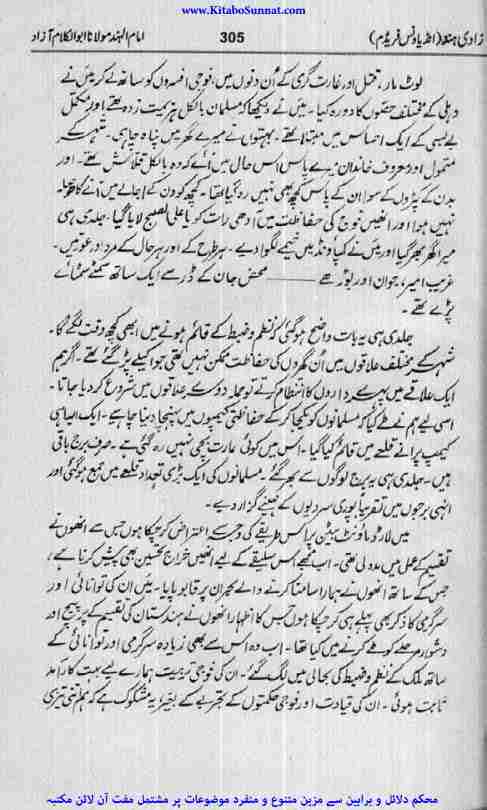 www.KitaboSunnat.com
زادی ہند (انڈیا ونس فریڈم) 305 امام الہند مولانا ابوالکلام آزاد
لوٹ مار، قتل اور غارت گری کے اُن دنوں میں، فوجی افسروں کو ساتھ لے کر میں نے
دہلی کے مختلف حصّوں کا دورہ کیا۔ میں نے دیکھا کہ مسلمان بالکل ہزیمت زدہ تھے اور مکمل
بے بسی کے ایک احساس میں مبتلا تھے۔ بہتوں نے میرے گھر میں پناہ چاہی۔ شہر کے
متمول اور معروف خاندان میرے پاس اس حال میں آئے کہ وہ بالکل قلاش تھے۔ اور
بدن کے کپڑوں کے سوا ان کے پاس کچھ بھی نہیں رہ گیا تھا۔ کچھ کو دن کے اجالے میں آنے کا
نہیں ہوا اور انھیں فوج کی حفاظت میں آدھی رات کو یا علی الصبح لایا گیا۔ جلدی ہی
میرا گھر بھر گیا اور میں نے کمپاؤنڈ میں خیمے لگوا دیے۔ ہر طرح کے اور ہر حال کے مرد اور عورتیں۔
غریب امیر، جوان اور بوڑھے —— محض جان کے ڈر سے ایک ساتھ سمٹے سمٹائے
پڑے تھے۔
جلدی ہی یہ بات واضح ہو گئی کہ نظم و ضبط کے قائم ہونے میں ابھی کچھ وقت لگے گا۔
شہر کے مختلف علاقوں میں اُن گھروں کی حفاظت ممکن نہیں تھی جو اکیلے پڑ گئے تھے۔ اگر ہم
ایک علاقے میں پہرے داروں کا انتظام کرتے تو حملہ دوسرے علاقوں میں شروع کر دیا جاتا۔
اسی لیے ہم نے طے کیا کہ مسلمانوں کو یکجا کر کے حفاظتی کیمپوں میں پہنچا دینا چاہیے۔ ایک ایسا ہی
کیمپ پرانے قلعے میں قائم کیا گیا۔ اس میں کوئی عمارت بچی نہیں رہ گئی ہے۔ صرف برج باقی
ہیں۔ جلدی ہی یہ برج لوگوں سے بھر گئے۔ مسلمانوں کی ایک بڑی تعداد قلعے میں جمع ہو گئی اور
انہی برجوں میں تقریباً پوری سردیوں کے مہینے گزار دیے۔
میں لارڈ ماؤنٹ بیٹن پر اس طریقے کی وجہ سے اعتراض کر چکا ہوں جس سے انھوں نے
تقسیم کے عمل میں مدد لی تھی۔ اب مجھے اس سلیقے کے لیے انھیں خراج تحسین بھی پیش کرنا ہے،
جس کے ساتھ انھوں نے ہمارا سامنا کرنے والے بحران پر قابو پایا۔ میں ان کی توانائی اور
سرگرمی کا ذکر بھی پہلے ہی کر چکا ہوں جس کا اظہار انھوں نے ہندستان کی تقسیم کے پر پیچ اور
دشوار مرحلے کو طے کرنے میں کیا تھا۔ اب وہ اس سے بھی زیادہ سرگرمی اور توانائی کے
ساتھ ملک کے نظم و ضبط کی بحالی میں لگ گئے۔ ان کی فوجی تربیت ہمارے لیے بہت کارآمد
ثابت ہوئی۔ ان کی قیادت اور فوجی حکمتوں کے تجربے کے بغیر یہ مشکوک ہے کہ ہم اتنی تیزی
محکم دلائل و براہین سے مزین متنوع و منفرد موضوعات پر مشتمل مفت آن لائن مکتبہ